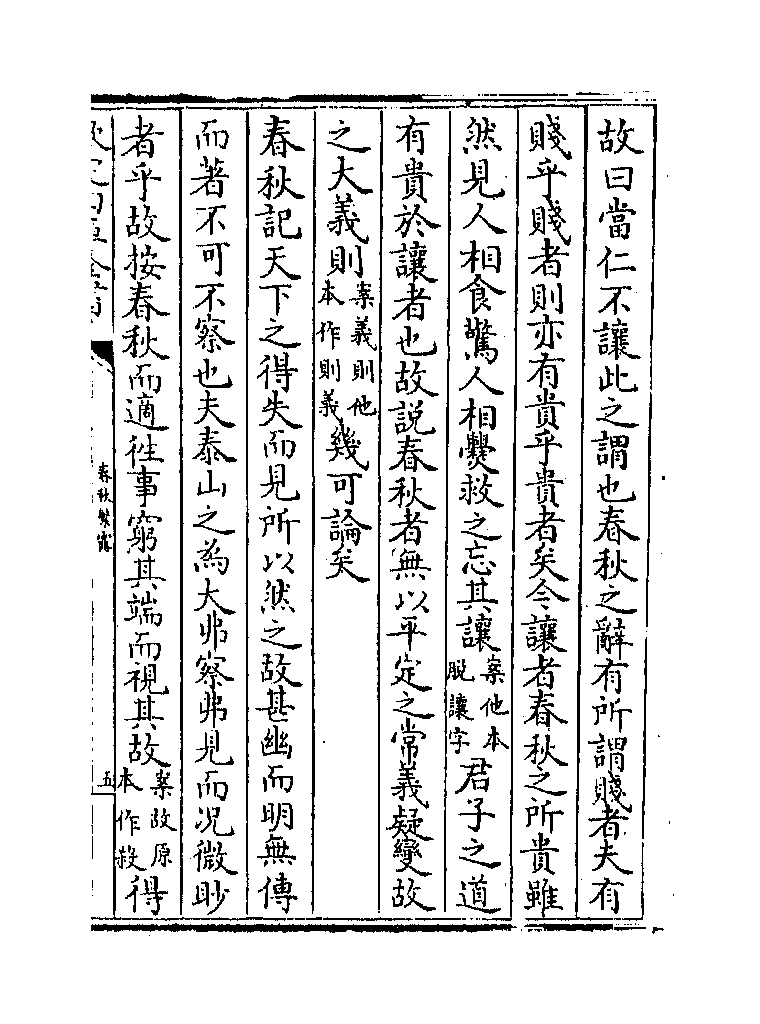 故曰當仁不讓此之謂也春秋之辭有所謂賤者夫有
賤乎賤者則亦有貴乎貴者矣今讓者春秋之所貴雖
然見人相食驚人相㸑救之忘其讓案他本脫讓字君子之道
有貴於讓者也故說春秋者無以平定之常義疑變故
之大義則案義則他本作則義幾可論矣
春秋記天下之得失而見所以然之故甚幽而明無傳
而著不可不察也夫泰山之為大弗察弗見而况微眇
者乎故按春秋而適徃事窮其端而視其故案故原本作殺得
春秋繁露
五